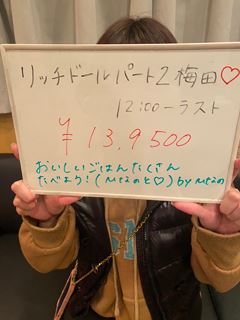 リッチドールパート2梅田♡
12:00-ラスト
¥13,9500
おいしいごはんたくさん
たべよう!(Mたのと♡)by Mたの